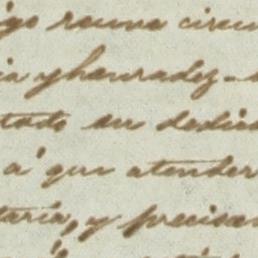 igo reuna circun
ia y honradez
tado su dedic
a' que atender
taria, y precisa